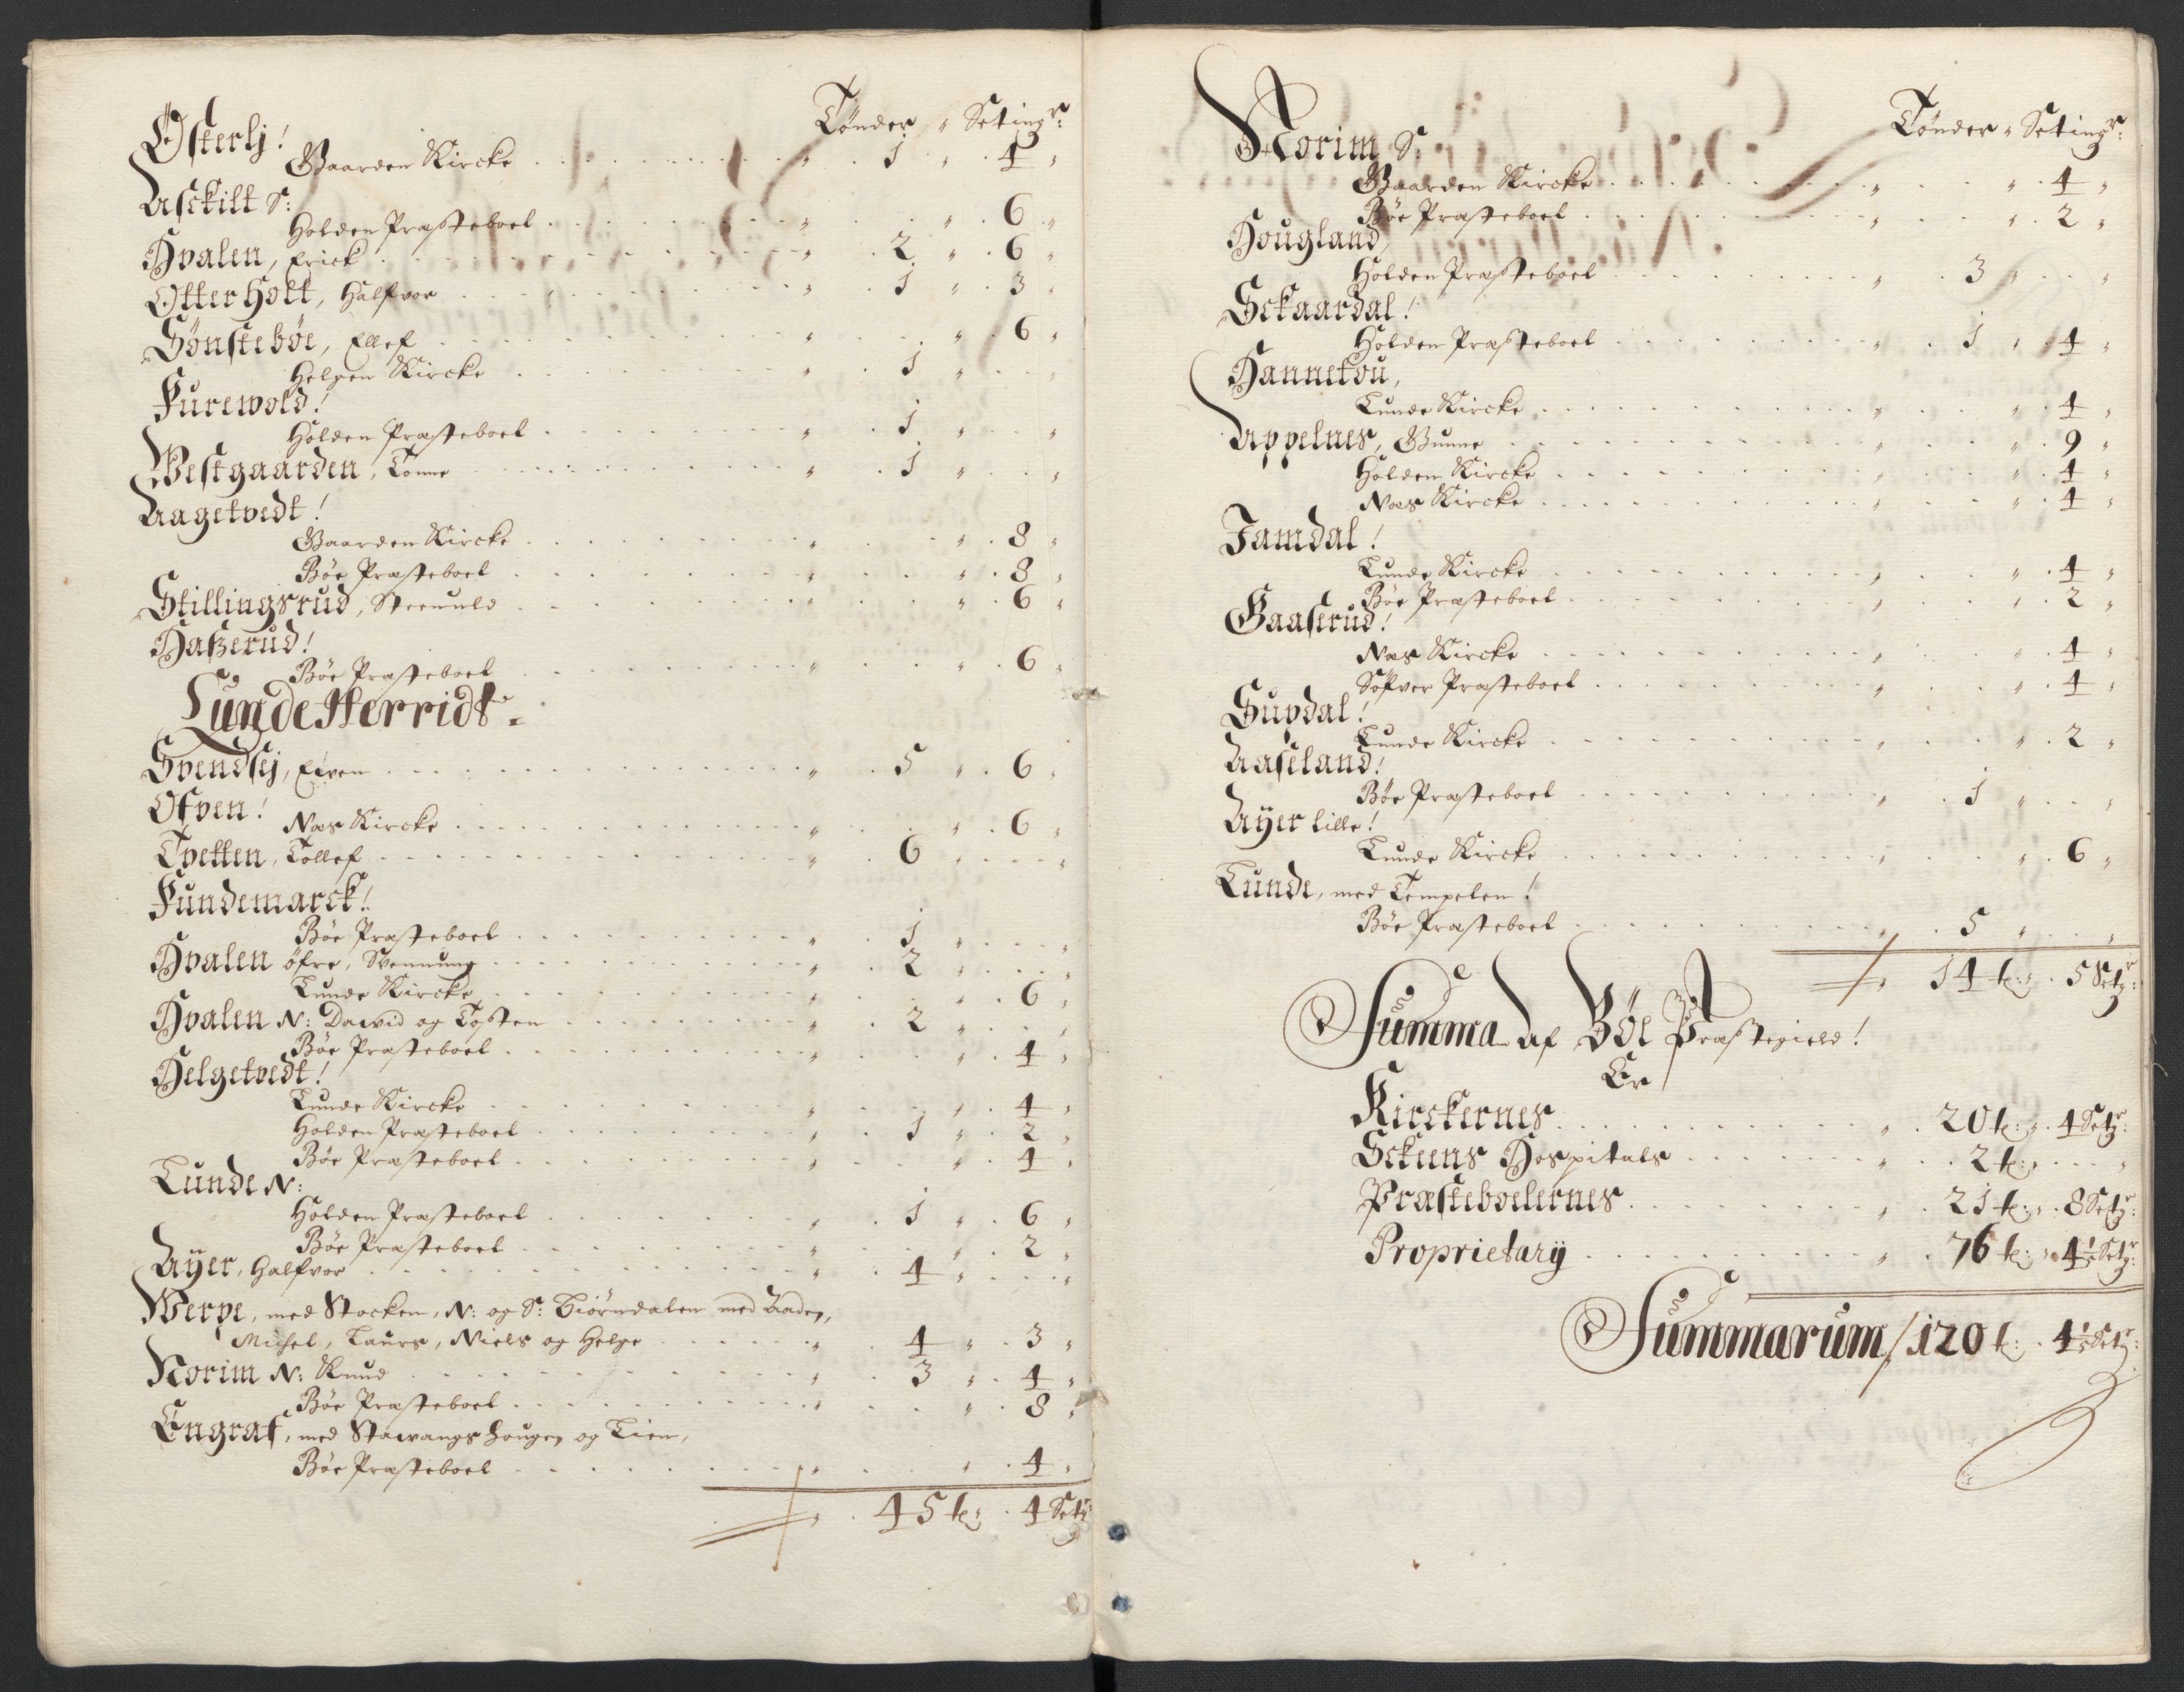 Tønder " Setingr:
Østerlj!
Gaarden Kircke . . . " . 1 " . 4 "
Asckilt S:
Holden Præsteboel . . . " . . " . 6 "
Hvalen, Erick . . . " . 2 " . 6 "
Otterholt, Halfvor . . . " . 1 " . 3 "
Sønstebøe, Ellef . . . " . . " . 6 "
Helgen Kircke . . . " . 1 " . . "
Furewold!
Holden Præsteboel . . . " . 1 " . . "
Westgaarden, Tonne . . . " . 1 " . . "
Aagetvedt!
Gaarden Kircke . . . " . . " . 8 "
Bøe Præsteboel . . . " . . " . 8 "
Stillingsrud, Steenuld . . . " . . " . 6 "
Haßerud!
Bøe Præsteboel . . . " . . " . 6 "
Lunde Herridt
Svendsej, Even . . . " . 5 " . 6 "
Ofven!
Næs Kircke . . . " . . " . 6 "
Tvetten, Tollef . . . " . 6 " . . "
Fundemarck!
Bøe Præsteboel . . . " . 1 " . . "
Hvalen øfre, Svennung . . . " . 2 " . . "
Lunde Kircke . . . " . . " . 6 "
Hvalen N: Dawid og Tosten . . . " . 2 " . . "
Bøe Præsteboel . . . " . . " . 4 "
Helgetvedt!
Lunde Kircke . . . " . . " . 4 "
Holden Præsteboel . . . " . 1 " . 2 "
Bøe Præsteboel . . . " . . " . 4 "
Lunde N:
Holden Præsteboel . . . " . 1 " . 6 "
Bøe Præsteboel . . . " . . " . 2 "
Aÿer, Halfvor . . . " . 4 " . . "
Werpe, med Stocken, N: og S: Biørndalen med
Michel, Laurs, Niels og Helge . . . " . 4 " . 3 "
Norim N: Knud . . . " . 3 " . 4 "
Bøe Præsteboel . . . " . . " . 8 "
Engraf, med Stawangs Hougen og Lien,
Bøe Præsteboel . . . " . . " . 4 "
" . 45 t: . 4 Set:
Tønder " Setingr:
Norim S:
Gaarden Kircke . . . " . . " . 4 "
Bøe Præsteboel . . . " . . " . 2 "
Hougland,
Holden Præsteboel . . . " . 3 " . . "
Sckaardal!
Holden Præsteboel . . . " . 1 " . 4 "
Hannetou,
Lunde Kircke . . . " . . " . 4 "
Appelnes, Gunne . . . " . . " . 9 "
Holden Kircke . . . " . . " . 4 "
Næs Kircke . . . " . . " . 4 "
Jamdal!
Lunde Kircke . . . " . . " . 4 "
Bøe Præsteboel . . . " . . " . 2 "
Gaaserud!
Næs Kircke . . . " . . " . 4 "
Søfver Præsteboel . . . " . . " . 4 "
Supdal!
Lunde Kircke . . . " . . " . 2 "
Aaseland!
Bøe Præsteboel . . . " . 1 " . . "
Aÿer lille!
Lunde Kircke . . . " . . " . 6 "
Lunde, med Tempelen!
Bøe Præsteboel . . . " . 5 " . . "
" . 14 t: . 5 Setr:
Summa Af Bøe Præstegield!
Er
Kirckernes . . . " . 20 t: " . 4 Setr:
Sckeens Hospitals . . . " . 2 t: " . . "
Præsteboelernes . . . " . 21 t: " . 8 Setr:
Proprietarÿ . . . " . 76 t: " . 4½ Setr:
Summarum / 120 t: . 4½ Setr: